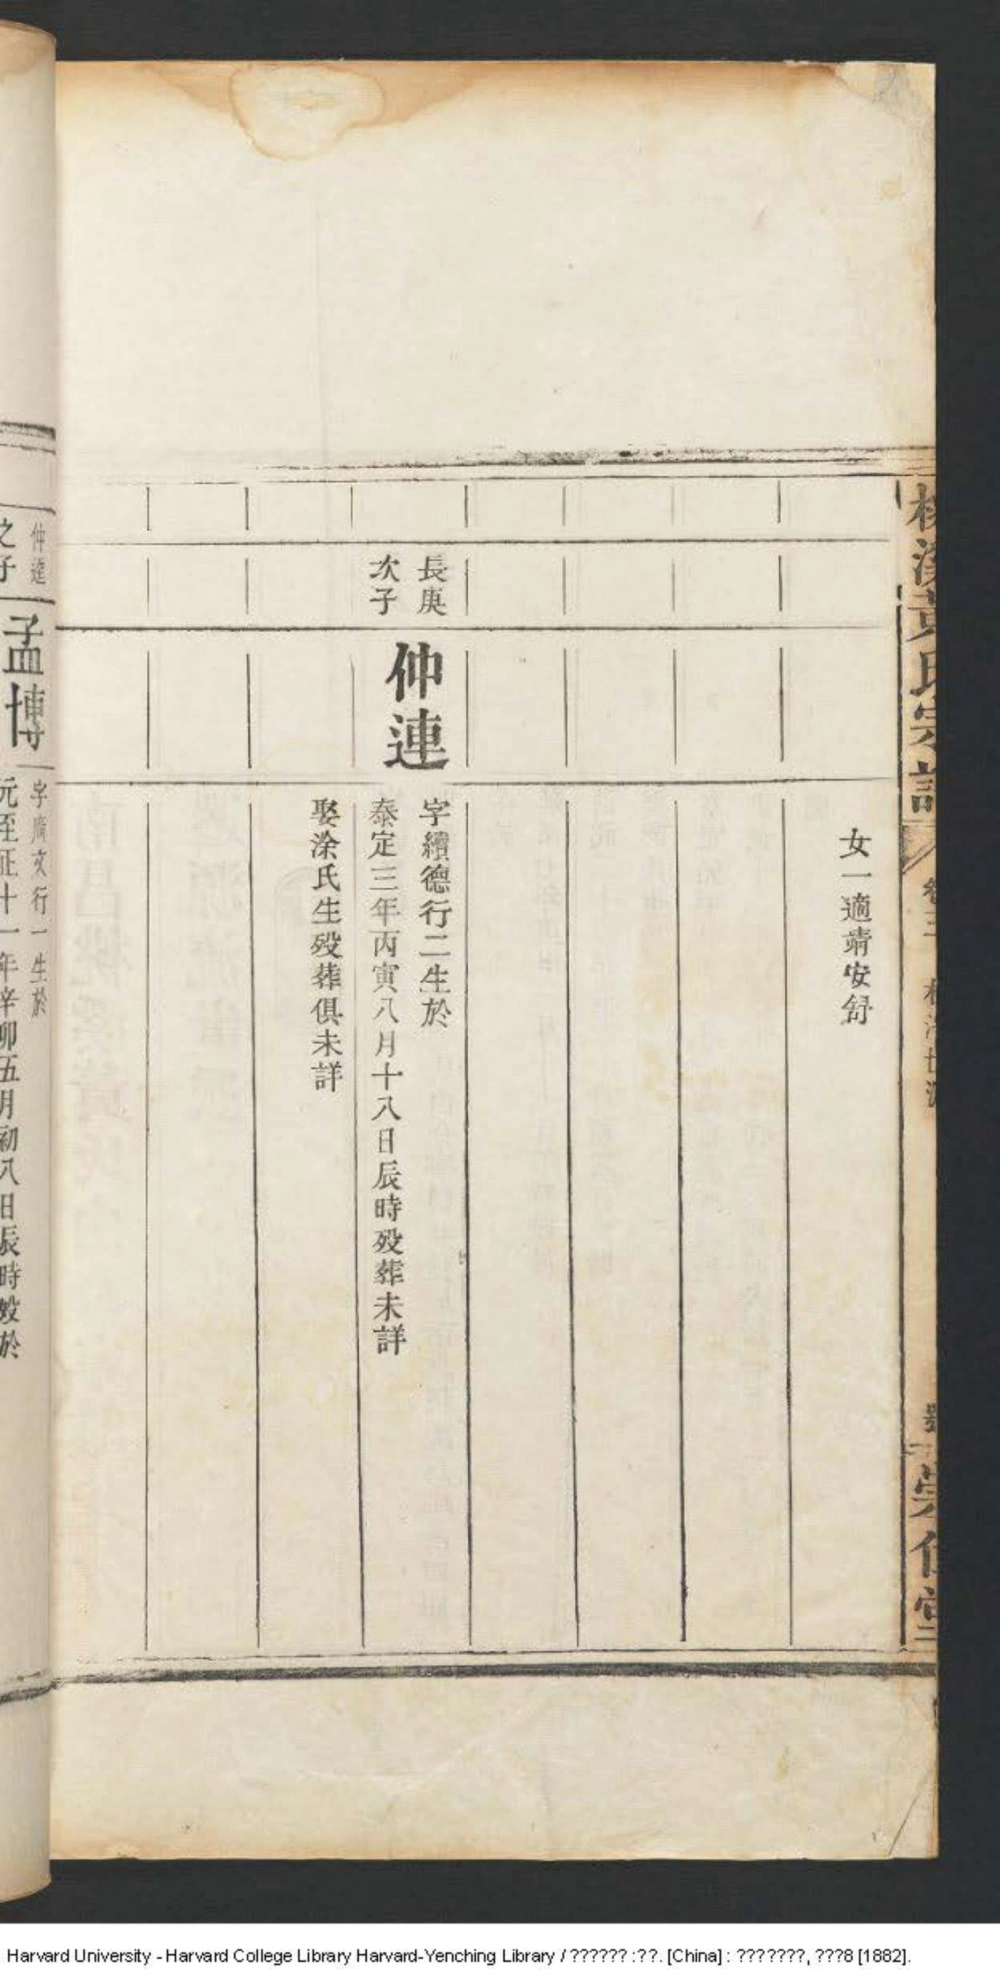 女一適靖安舒
長庚
次子
仲連
字纘德行二生於
泰定三年丙寅八月十八日辰時歿葬未詳
娶涂氏生歿葬俱未詳
仲達
之子
孟博
字廣文行一生於
元至正十一年辛卯五月初八日辰時歿於
氏宗譜
卷三
崇仁堂
Harvard University - Harvard College Library Harvard-Yenching Library / ?????? :??. [China] : ???????, ???8 [1882].